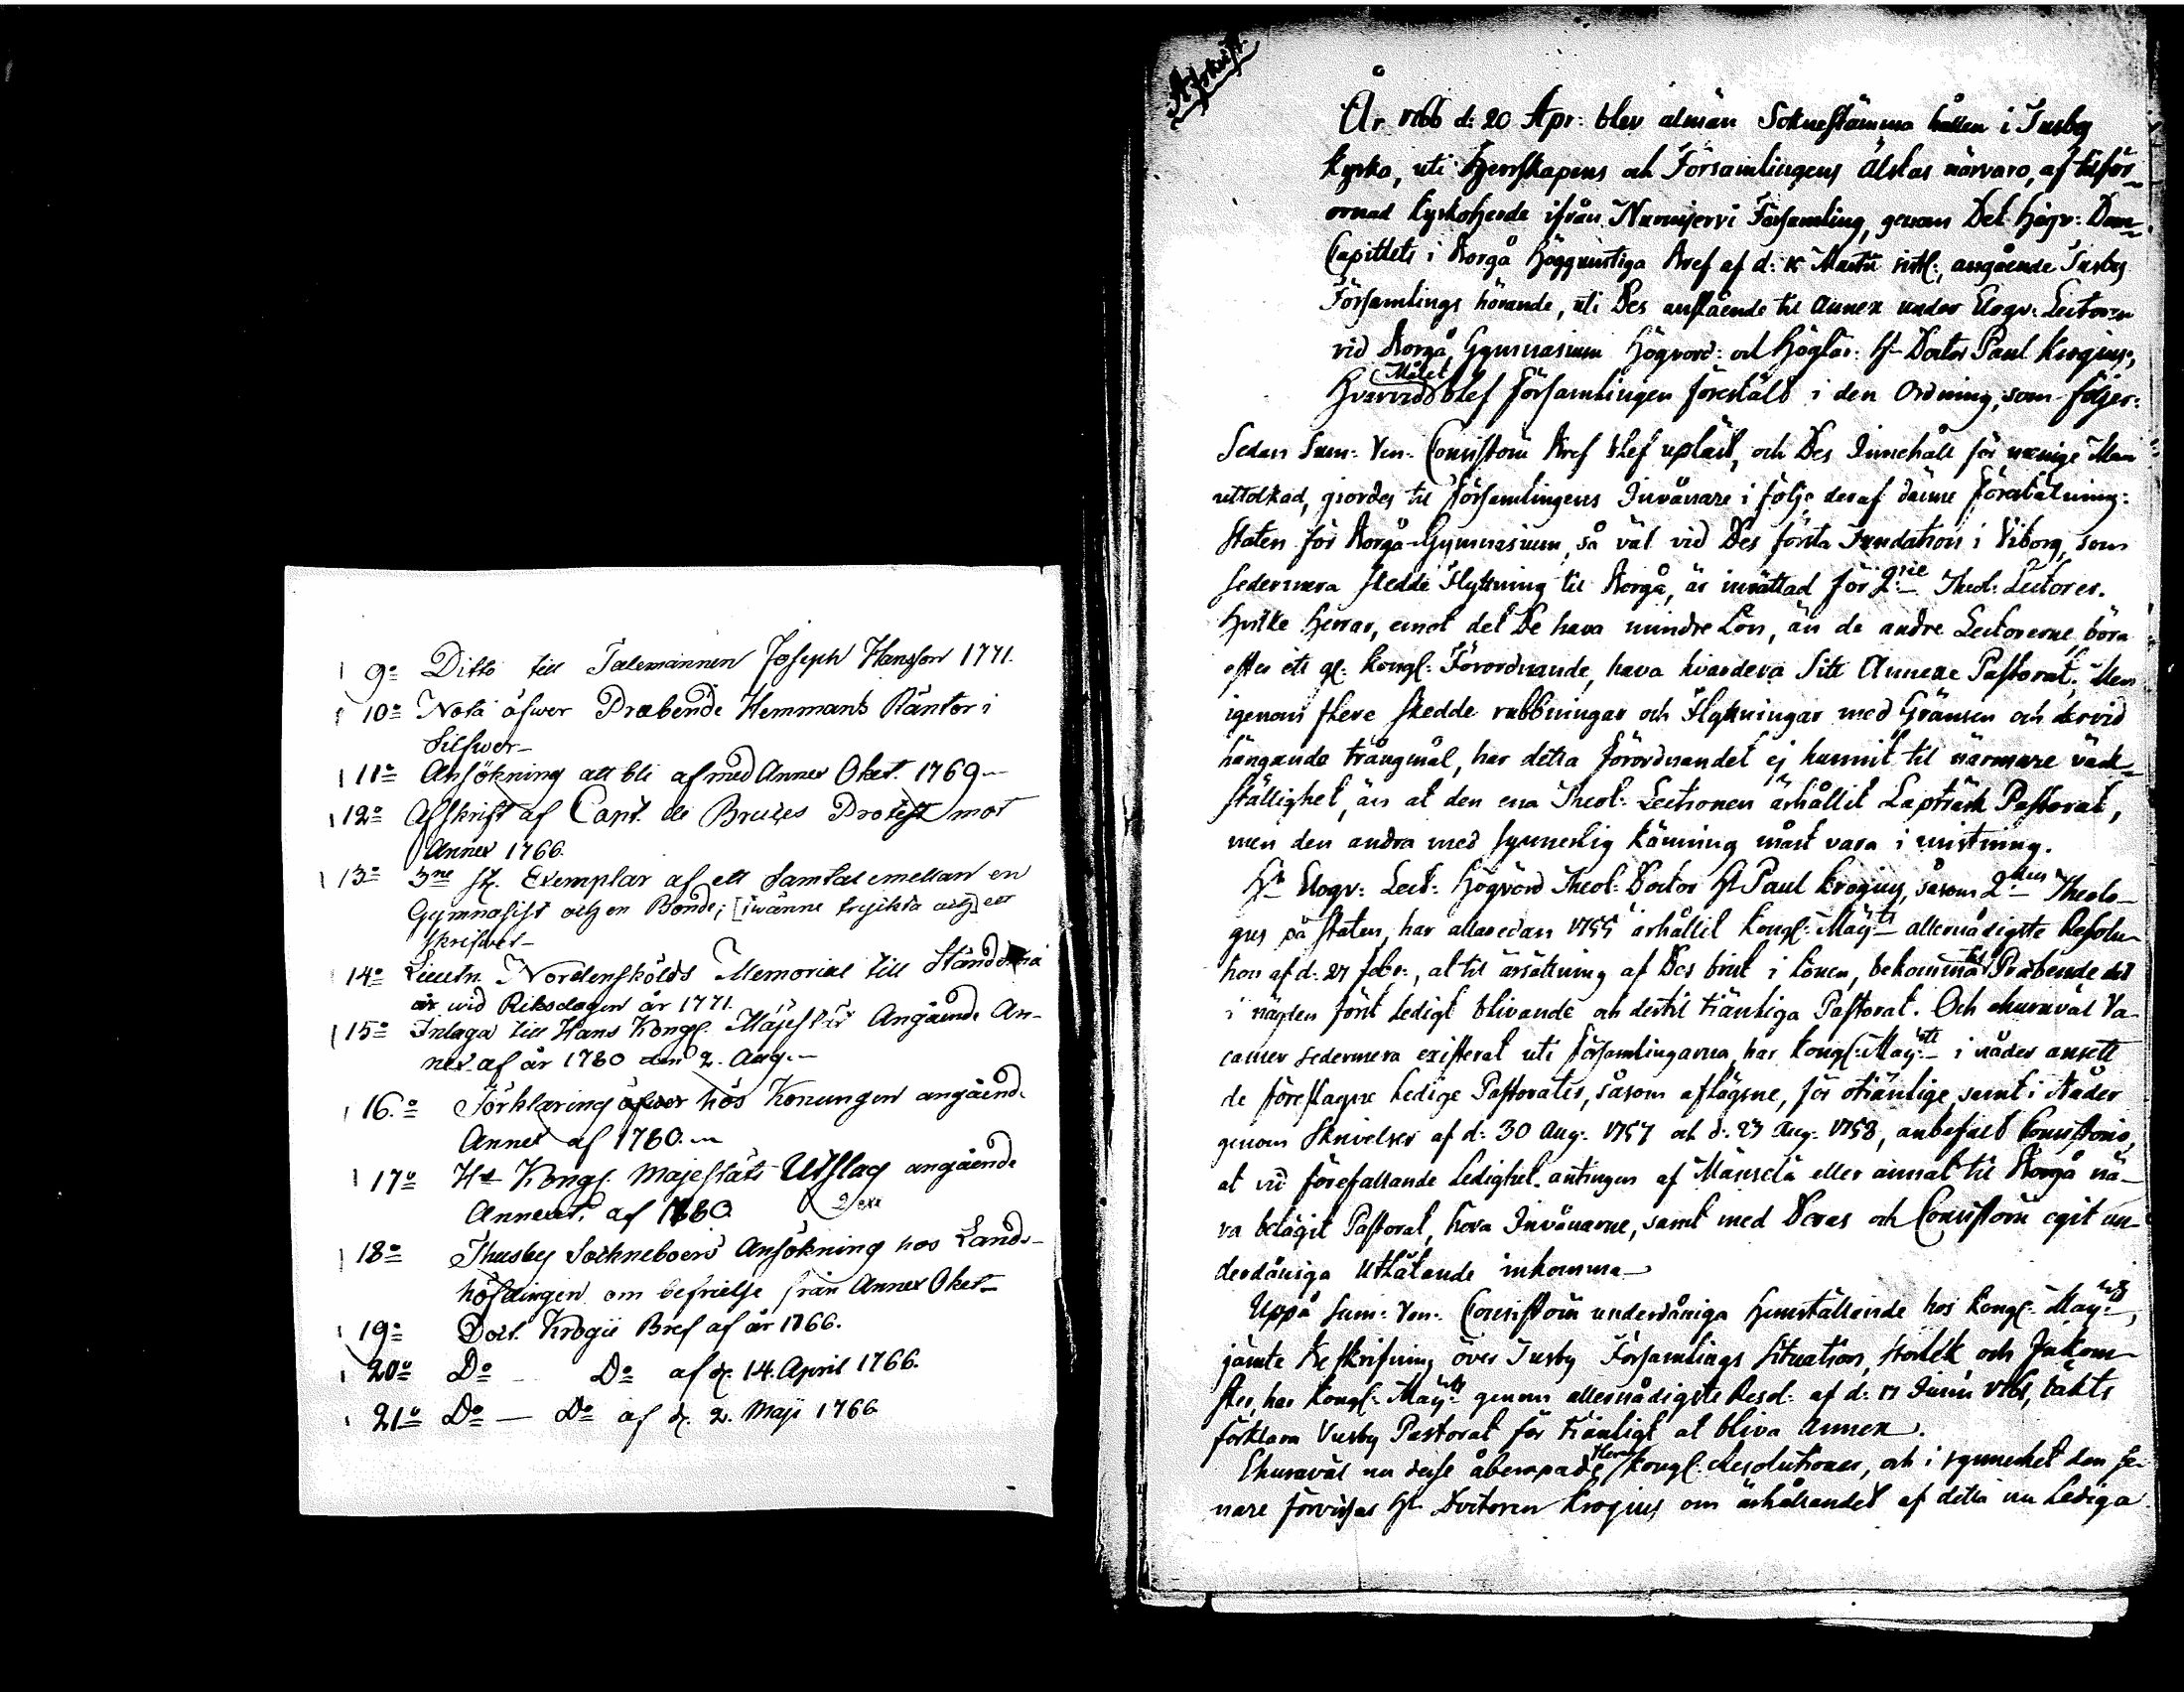 9o Ditto till Talemannen Joseph Hansson 1771.
10o Nota öfwer Præbende Hemmans Räntor i
Silfwer
11o Ansökning att bli af med Annex Oket. 1769
12o Afskrift af Capit. de Bruces Protest mot
Annex 1766.
13o 3ne st. Exemplar af ett Samtal emellan en
Gymnasist och en Bonde; [ twänne tryckta och ett
skrifwet
14o Lieutn. Nordenskölds Memorial till Ständerna
wid Riksdagen år 1771.
15o Inlaga till Hans Kongl. Majestät Angående An-
nex af år 1780 den 2. Aug.
16.o Förklaring hos Konungen angående
Annex af 1780.
17o Hs Kongl. Majestäts Utslag angående
Annexet. af 1780. 2 ex
18o Thusby Sockneboers Ansökning hos Lands-
höfdingen om befrielse från Annex Oket
19o Doct. Krogii Bref af år 1766.
20o Do Do af d. 14. April 1766.
21o Do — Do af d. 2. Maji 1766
Afskrift.
År 1766 d: 20 Apr: blev almän Soknestämma hållen i Tusby
kyrko, uti Herrskapens och Församlingens Älstas närvaro, af tilför-
ornad kyrkoherde ifrån Nurmijervi Församling, genom Det Högv: Dom-
Capitlets i Borgå Höggunstiga Bref af d: Martii sistl:, angående Tusby
Församlings hörande, uti Des anslående til Annex under Elogv: Lectoren
vid Borgå Gymnasium Högvord: och Höglär: Hr Doctor Paul Krogius,
Hvarvid Målet blef Församlingen förestält i den Ordning, som följer:
Sedan Sum: Ven: Consistorii Bref blef upläst, och Des Innehåll för menige Man
uttolkad, giordes til Församlingens Invånare i följe deraf dänne föreställning:
Staten för Borgå Gymnasium, så väl vid Des första Fundation i Viborg, som
sedermera skedde Flyttning til Borgå, är inrättad för 2:ne Theol: Lectores.
Hvilke Herrar, emot det De hava mindre Lön, än de andre Lectorerne, böra
efter ett gl: Kongl: Förordnande, hava hvardera Sitt Annexe Pastorat. Men
igenom flere skedde rubbningar och Flyttningar med Gränsen och dervid
hängande trångmål, har detta förordnandet ej hunnit til närmare värk-
ställighet, än at den ena Theol: Lectionen ärhållit Lapträsk Pastorat,
men den andra med synnerlig känning måst vara i mistning.
Hr Elogv: Lect: Högvörd Theol: Doctor Hr Paul Krogius, såsom 2:dus Theolo-
gus på staten, har allaredan 1755 ärhållit Kongl: May:ts allernådigste Resolu-
tion af d: 27 Febr:, at til ärsättning af Des brist i Lönen, bekomma til Præbende det
i nägden först Ledigt blivande och dertil tiänliga Pastorat. Och ehuruväl Va-
cancer sedermera existerat uti församlingarna, har Kongl: May:tt i nåder ansett
de föreslagne Ledige Pastorater, såsom aflägsne, för otiänlige, samt i Nåder
genom Skrivelser af d: 30 Aug: 1757 och d: 23 Aug: 1758, anbefalt Consistorio,
at vid förefallande Ledighet antingen af Mänselä eller annat til Borgå nä-
ra belägit Pastorat, höra Invånarne, samt med Deras och Consistorii egit un-
derdåniga Utlåtande inkomma
Uppå Sum: Ven: Consistorii underdåniga Hemställande hos Kongl: May:tt,
jämte Beskrifning över Tusby Församlings Situation, Storlek och Inkom-
ster, har Kongl: May:tt genom allernådigste Resol: af d: 17 Junii 1761, täkts
förklara Tusby Pastorat för tiänligt at bliva Annex.
Ehuruväl nu desse åberopade flera Kongl: Resolutioner, och i synnerhet den se-
nare förvissar Hr Doctoren Krogius om ärhållandet af detta nu Lediga